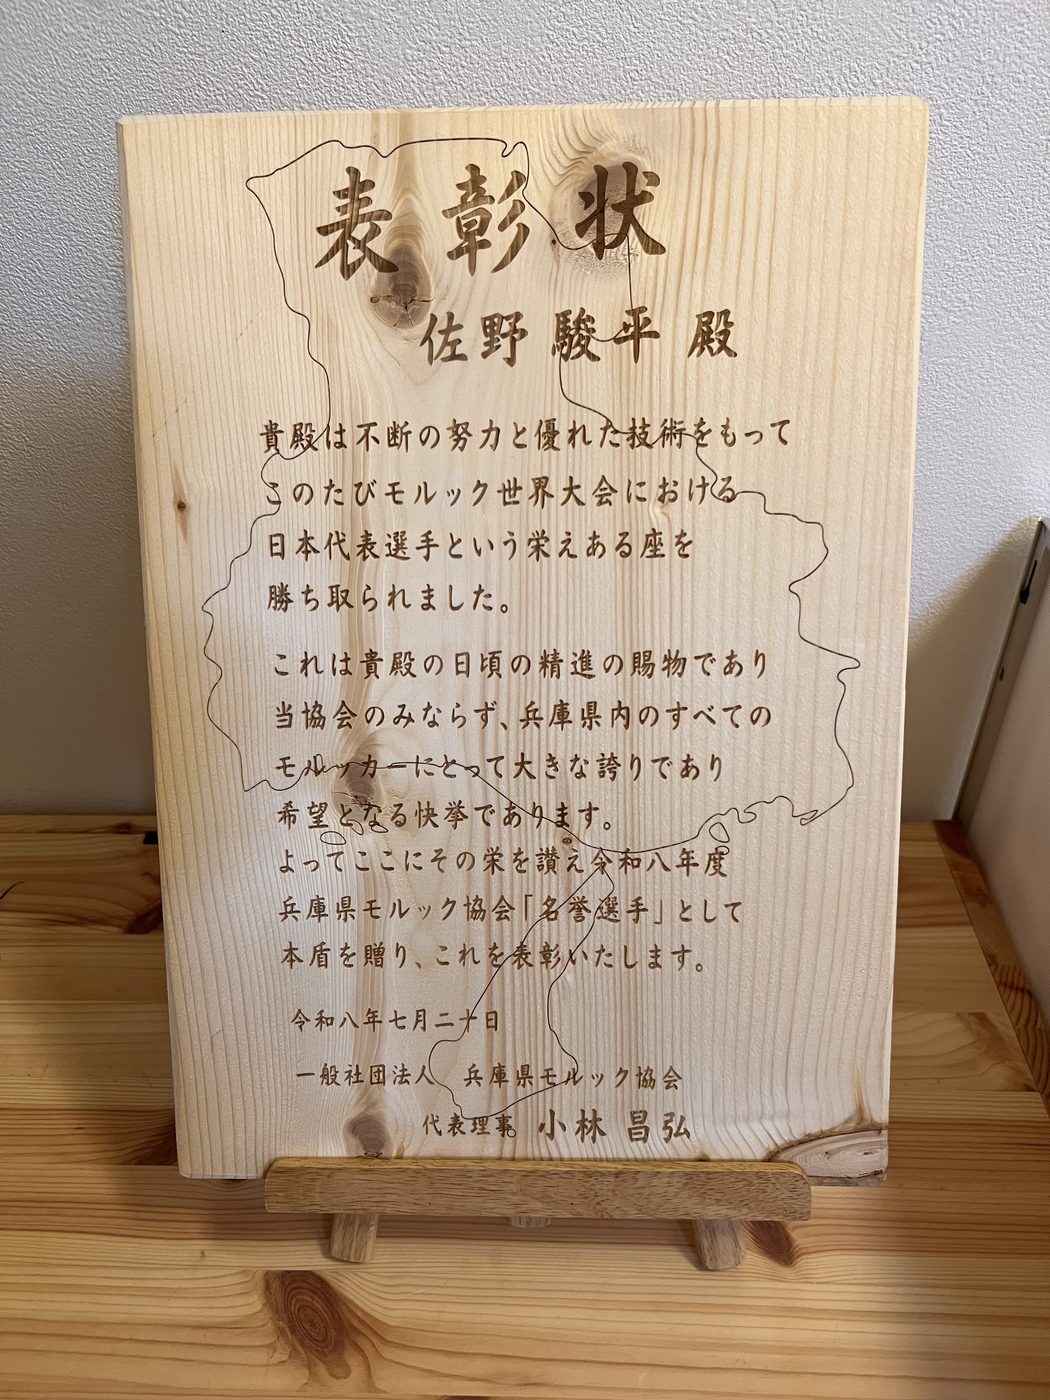 表彰状
佐野 駿平 殿
貴殿は不断の努力と優れた技術をもって
このたびモルック世界大会における
日本代表選手という栄えある座を
勝ち取られました。
これは貴殿の日頃の精進の賜物であり
当協会のみならず、兵庫県内のすべての
モルッカーにとって大きな誇りであり
希望となる快挙であります。
よってここにその栄を讃え令和八年度
兵庫県モルック協会「名誉選手」として
本盾を贈り、これを表彰いたします。
令和八年七月二十日
一般社団法人 兵庫県モルック協会
代表理事 小林 昌弘